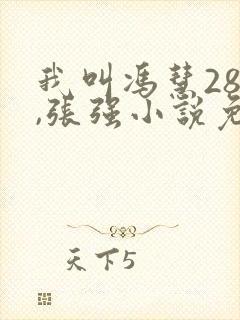 我叫馮慧28
,張强小説免
天下5